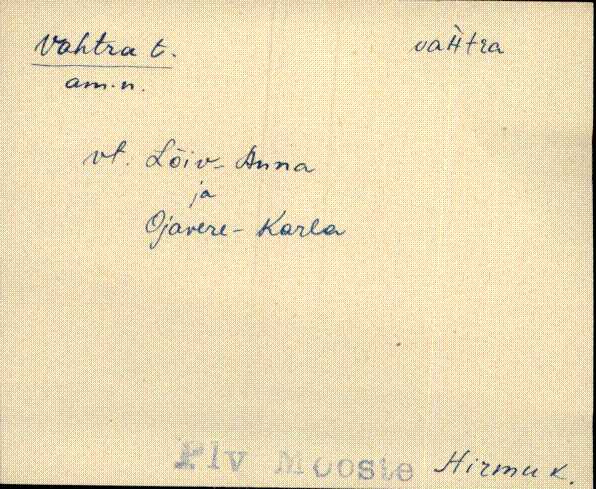 Vahtra t. vaH̀tra
am.n.
vt. Lõiv-Anna
ja
Ojavere-Karla
Plv Mooste Hirmu k.